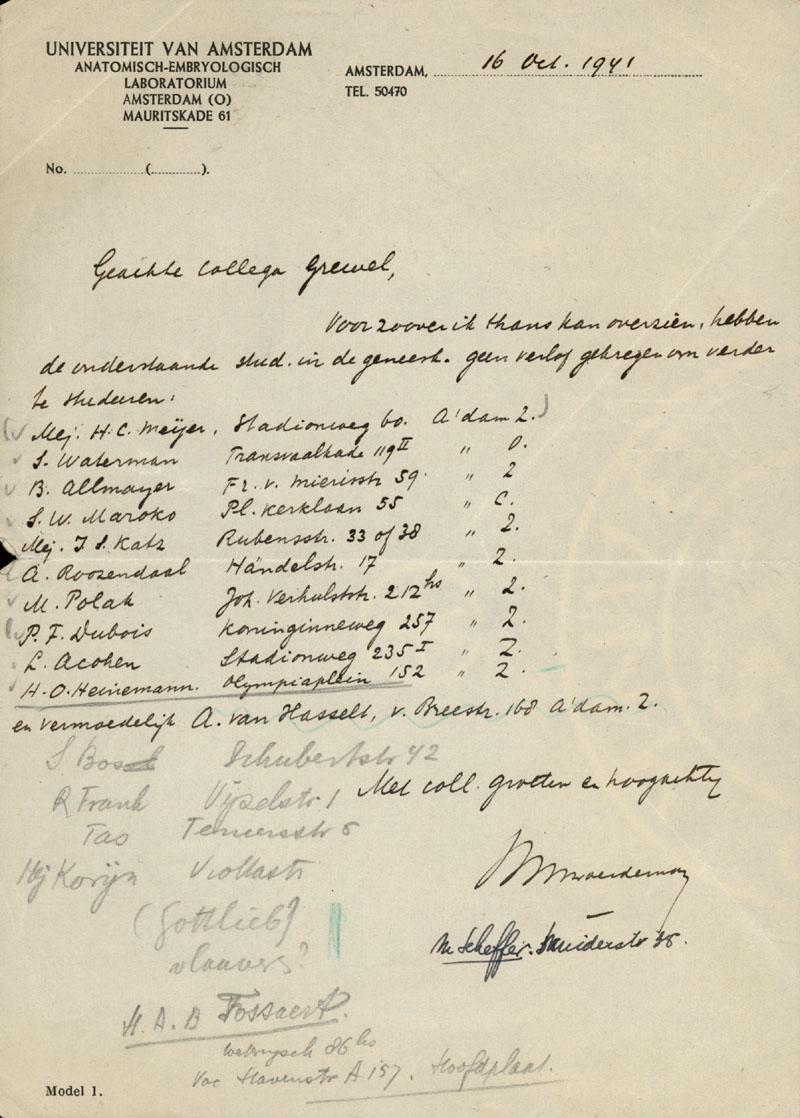 UNIVERSITEIT VAN AMSTERDAM
ANATOMISCH-EMBRYOLOGISCH
LABORATORIUM
AMSTERDAM (O)
MAURITSKADE 61
AMSTERDAM, 16 Oct. 1941
TEL. 50470
No. (          ).
Geachte Collega Grewel,
Voor zoover ik thans kan overzien, hebben
de onderstaande stud. in de geneesk. geen verlof gekregen om verder
te studeeren:
Mej. H. C. Meijer, Stadionweg 60. A'dam Z.
S. Waterman Transvaalkade 119 II " O.
B. Allmayer Fr. v. Mierisstr 59. " Z
S. W. Maroko Pl. Kerklaan 55 " C.
Mej. I. S. Katz Rubensstr. 33 of 38 " Z.
A. Roozendaal Händelstr. 17 " Z.
M. Polak Joh. Verhulststr. 212 hs " Z.
P. F. Dubois Koninginneweg 257 " Z.
L. Acohen Stadionweg 235 I " Z.
H. O. Heinemann. Olympiaplein 152 " Z.
en vermoedelijk A. van Hasselt, v. Breestr. 168 A'dam. Z.
S Schubertstr 42
R Frank IJselstr. 1
Met coll. groeten en hoogachting
Tas Teniersstr 5
Mej Korijn Viottastr
(Gottlieb)
M. Scheffer.
H. A. B Fossaert.
86 hs
Havenstr A 157. Hoofdplaat.
Model 1.